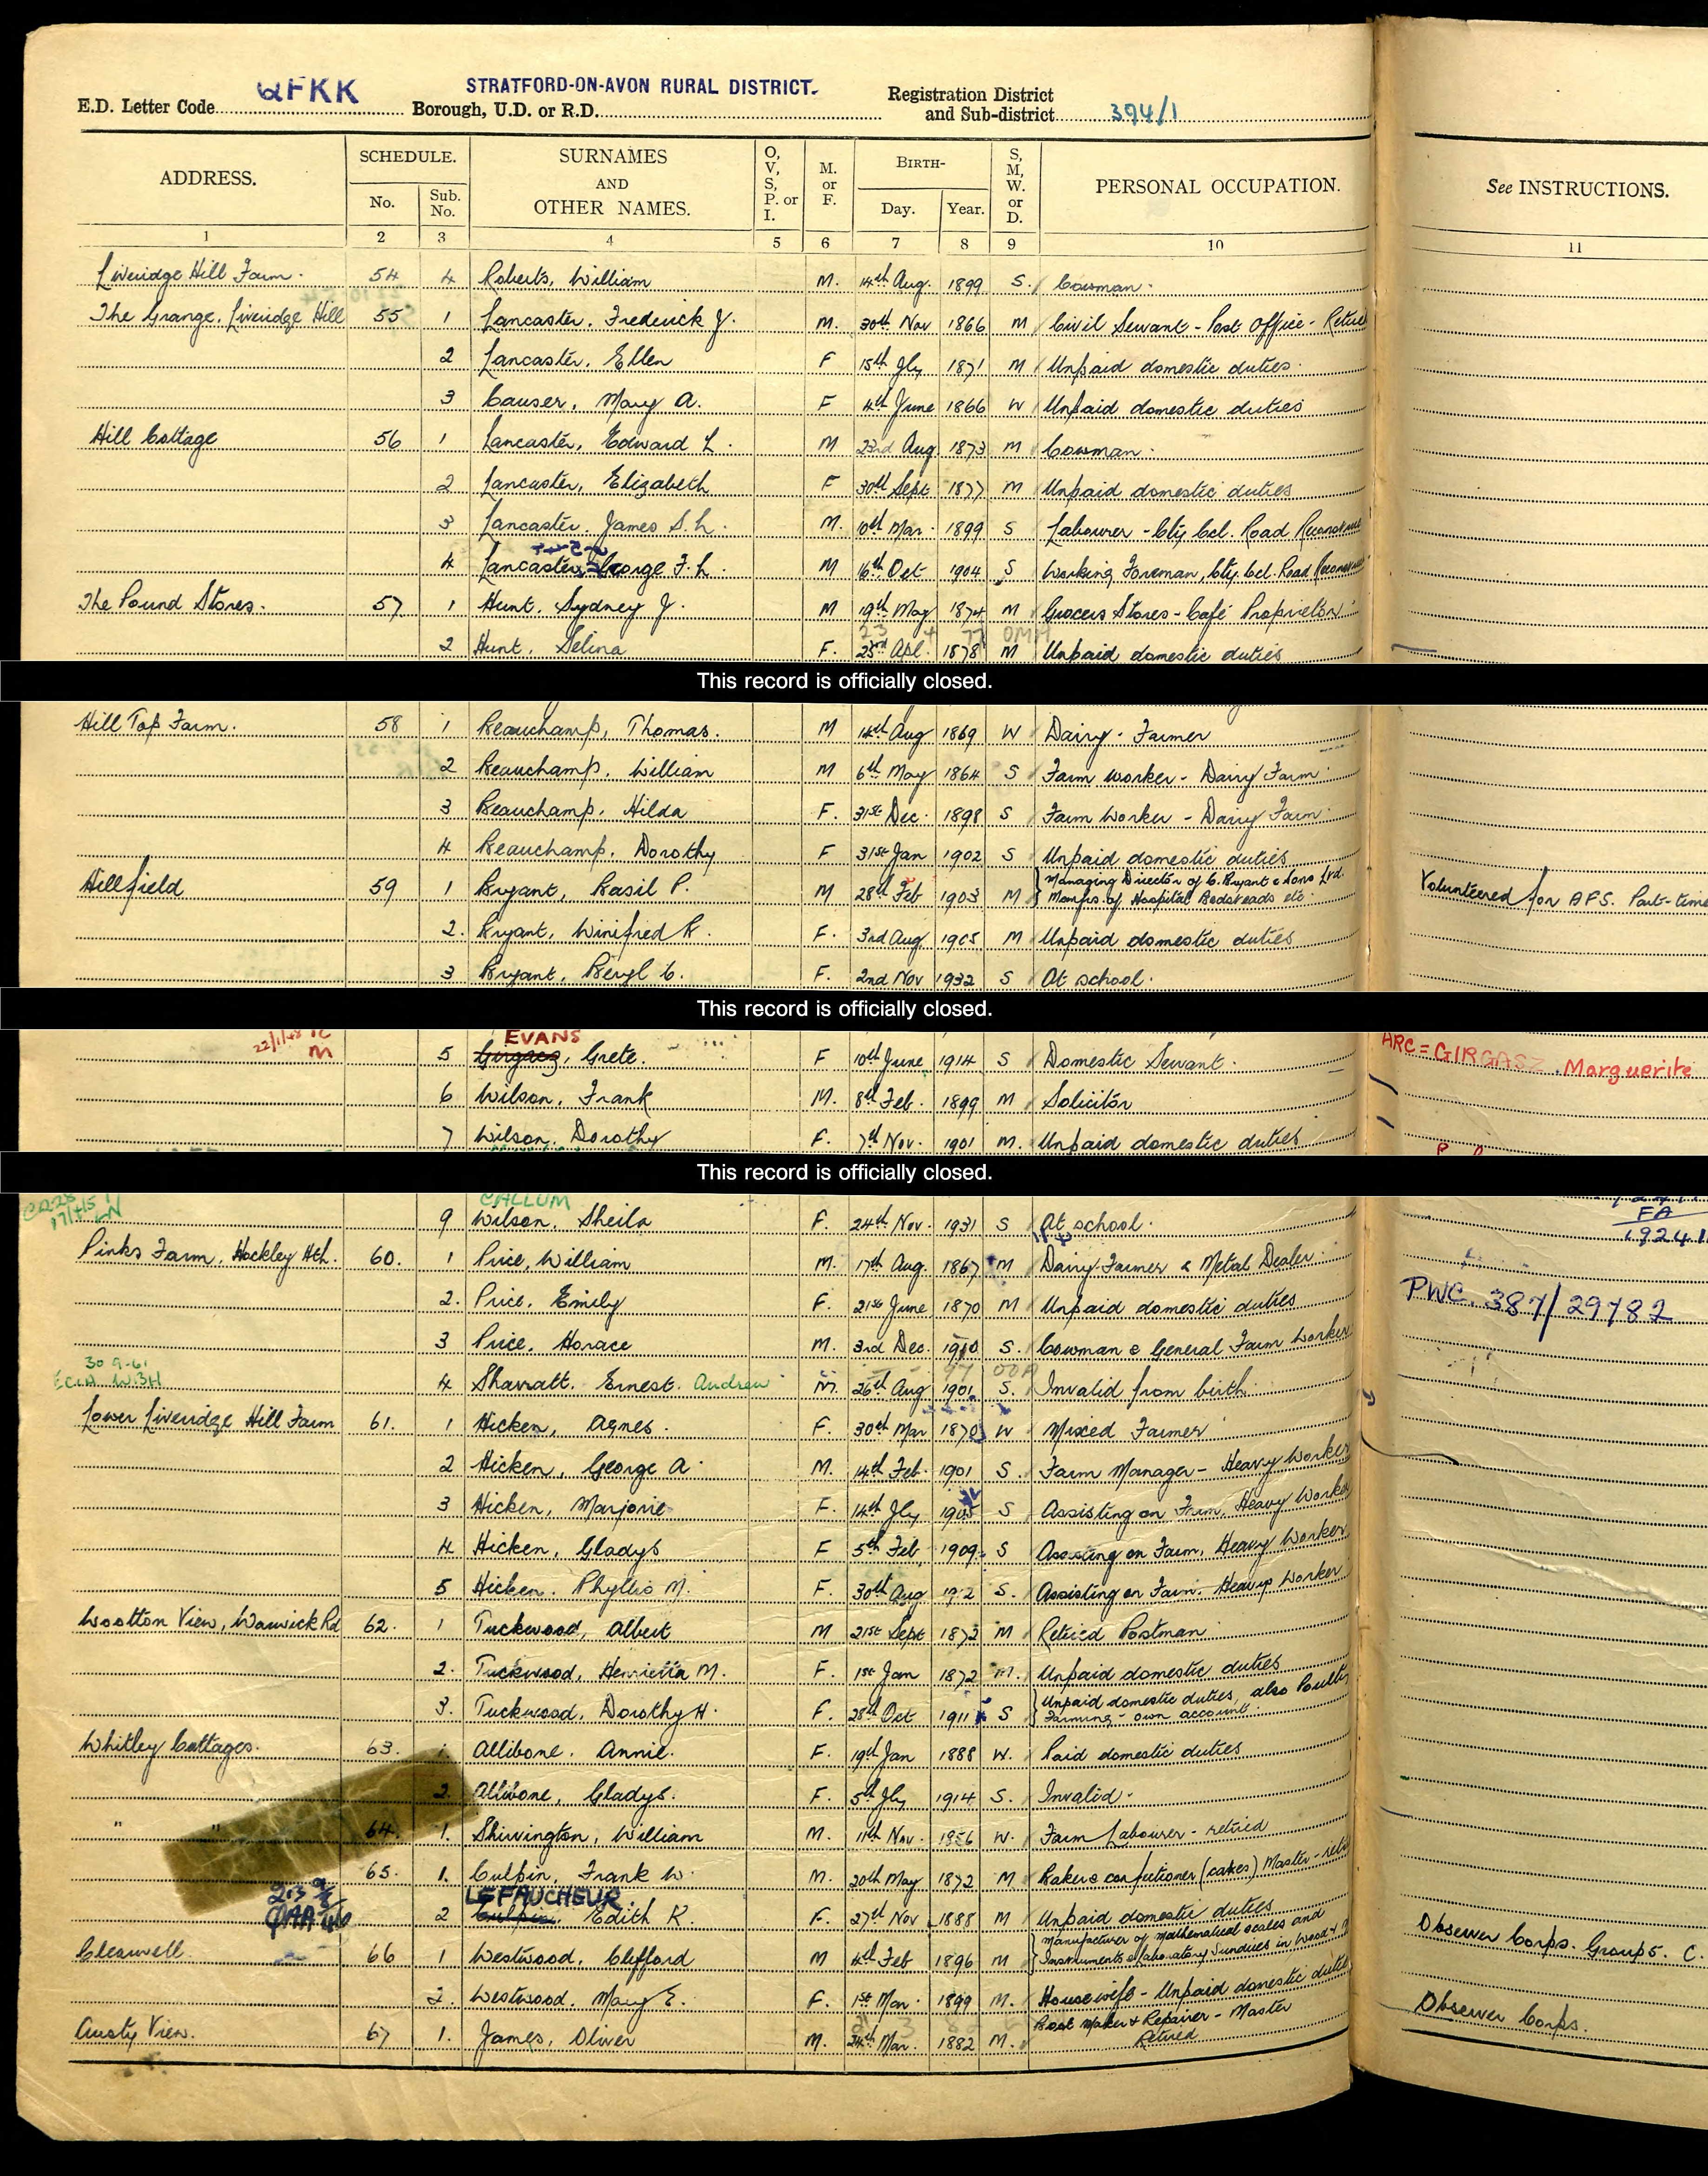 E.D. Letter Code QFKK Borough, U.D. or R.D. STRATFORD-ON-AVON RURAL DISTRICT. Registration District and Sub-district 394/1
ADDRESS. SCHEDULE. No. Sub. No. SURNAMES AND OTHER NAMES. O, V, S, P. or I. M. or F. BIRTH- Day. Year. S, M, W. or D. PERSONAL OCCUPATION. See INSTRUCTIONS.
1 2 3 4 5 6 7 8 9 10 11
Liveridge Hill Farm. 54 4 Roberts, William M. 14th Aug. 1899 S. Cowman.
The Grange, Liveridge Hill 55 1 Lancaster, Frederick J. M. 30th Nov 1866 M Civil Servant - Post Office - Retire
2 Lancaster, Ellen F 15th Jly 1871 M Unpaid domestic duties.
3 Causer, Mary A. F 4th June 1866 W Unpaid domestic duties
Hill Cottage 56 1 Lancaster, Edward L. M 23rd Aug 1873 M Cowman.
2 Lancaster, Elizabeth F 30th Sept 1877 M Unpaid domestic duties
3 Lancaster, James S.L. M. 10th Mar. 1899 S Labourer - Cty Ccl. Road
4 Lancaster, George F.L. M 16th Oct 1904 S Working Foreman, Cty. Ccl. Road
The Pound Stores. 57 1 Hunt, Sydney J. M 19th May 1874 M Grocers Stores - Café Proprietor
23 4 77 OMH
2 Hunt, Selina F. 23rd Apl. 1878 M Unpaid domestic duties
This record is officially closed.
Hill Top Farm. 58 1 Beauchamp, Thomas. M 14th Aug 1869 W Dairy Farmer
2 Beauchamp, William M 6th May 1864 S Farm worker - Dairy Farm
3 Beauchamp, Hilda F. 31st Dec. 1898 S Farm Worker - Dairy Farm
4 Beauchamp, Dorothy F 31st Jan 1902 S Unpaid domestic duties
Hillfield 59 1 Bryant, Basil P. M 28th Feb 1903 M Managing Director of C. Bryant & Sons Ltd. Volunteered for AFS. Part-time
Manfrs. of Hospital Bedsteads etc.
2. Bryant, Winifred R. F. 3rd Aug. 1905 M Unpaid domestic duties
3 Bryant, Beryl C. F. 2nd Nov 1932 S At school.
This record is officially closed.
22/1/48
M
EVANS
5 Girgacz, Grete. F 10th June 1914 S Domestic Servant. ARC = GIRGASZ. Marguerite
6 Wilson, Frank M. 8th Feb. 1899 M Solicitor
7 Wilson, Dorothy F. 7th Nov. 1901 M. Unpaid domestic duties
This record is officially closed.
CALLUM
9 Wilson, Sheila F. 24th Nov. 1931 S At school.
FA
Pinks Farm, Hockley Hth. 60. 1 Price, William M. 17th Aug. 1867 M Dairy Farmer & Metal Dealer
2. Price, Emily F. 21st June 1870 M Unpaid domestic duties PWC. 387/29782
3 Price, Horace M. 3rd Dec. 1910 S. Cowman & General Farm Worker
30 9-61
4 Sharratt, Ernest. Andrew M. 26th Aug 1901 S. Invalid from birth
Lower Liveridge Hill Farm 61. 1 Hicken, Agnes. F. 30th Mar 1870 W Mixed Farmer
2 Hicken, George A. M. 14th Feb. 1901 S. Farm Manager - Heavy Worker
3 Hicken, Marjorie F. 14th Jly 1905 S Assisting on Farm, Heavy Worker
4 Hicken, Gladys F 5th Feb. 1909. S Assisting on Farm, Heavy Worker
5 Hicken, Phyllis M. F. 30th Aug 1912 S. Assisting on Farm. Heavy Worker
Wootton View, Warwick Rd 62. 1 Tuckwood, Albert M 21st Sept 1872 M Retired Postman
2. Tuckwood, Henrietta M. F. 1st Jan 1872 M. Unpaid domestic duties
3. Tuckwood, Dorothy H. F. 28th Oct 1911 S Unpaid domestic duties, also Poultry
Farming - own account
Whitley Cottages. 63. 1. Allibone, Annie. F. 19th Jan 1888 W. Paid domestic duties
2. Allibone, Gladys. F. 5th Jly 1914 S. Invalid.
" " 64. 1. Shirvington, William M. 11th Nov. 1856 W. Farm Labourer - retired
65. 1. Culpin, Frank W. M. 20th May 1872 M Baker & confectioner (cakes) Master - reti
LE FAUCHEUR
2 Culpin, Edith K. F. 27th Nov 1888 M Unpaid domestic duties
Clearwell. 66 1 Westwood, Clifford M 4th Feb 1896 M Manufacturer of mathematical scales and Observer Corps. Group 5. C.
Instruments & laboratory Sundries in Wood &
2. Westwood, Mary E. F. 1st Mar. 1899 M. Housewife - Unpaid domestic duties
Austy View. 67 1. James, Oliver M. 24th Mar. 1882 M. Boot maker & Repairer - Master Observer Corps.
Retired